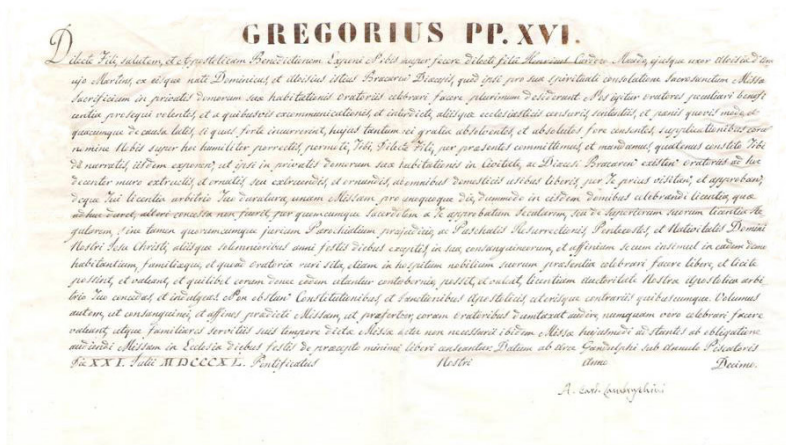 GREGORIUS PP. XVI.
Dilecte Fili, salutem, et Apostolicam Benedictionem. Exponi Nobis nuper fecere dilecti filii Henricus Cardozo ejusque uxor
Martins, ex eisque nati Dominicus, et Aloisius istius Bracaren Diœcesis, quod ipsi pro sua spirituali consolatione Sacrosanctum Missæ
Sacrificium in privatis domorum suæ habitationis oratoriis celebrari facere plurimum desiderant. Nos igitur oratores peculiari benefi
centia prosequi volentes, et a quibusvis excommunicationis, et interdicti, aliisque ecclesiasticis censuris, sententiis, et pœnis quovis modo, et
quacumque de causa latis, si quas forte incurrerint, hujus tantum rei gratia absolventes, et absolutos fore censentes, supplicationibus eorum
nomine Nobis super hoc humiliter porrectis, permoti, Tibi, Dilecte Fili, per præsentes committimus, et mandamus, quatenus constito Tibi
de narratis, iisdem exponen, ut ipsi in privatis domorum suæ habitationis in Civitate, ac Diœcesi Bracaren existen oratoriis ad hoc
decenter muro extructis, et ornatis, seu extruendis, et ornandis, ab omnibus domesticis usibus liberis, per Te prius visitan, et approban,
deque Tui licentia arbitrio Tuo duratura, unam Missam pro unoquoque die, dummodo in eisdem domibus celebrandi licentia, quæ
adhuc duret, alteri concessa non fuerit, per quemcumque Sacerdotem a Te approbatum Sæcularem, seu de Superiorum suorum licentia Re
gularem, sine tamen quorumcumque jurium Parochialium præjudicio, ac Paschalis Resurrectionis, Pentecostes, et Nativitatis Domini
Nostri Jesu Christi, aliisque solemnioribus anni festis diebus exceptis, in sua, consanguineorum, et affinium secum insimul in eadem domo
habitantium, familiæque, et quoad oratoria ruri sita, etiam in hospitum nobilium suorum præsentia celebrari facere libere, et licite
possint, et valeant, et quilibet eorum possit, et valeat, licentiam auctoritate Nostra Apostolica arbi
trio Tuo concedas, et indulgeas. Non obstan Constitutionibus, et Sanctionibus Apostolicis, ceterisque contrariis quibuscumque. Volumus
autem, ut consanguinei, et affines prædicti Missam, ut præfertur, coram oratoribus dumtaxat audire, numquam vero celebrari facere
valeant, utque familiares servitiis suis tempore dictæ Missæ actu non necessarii ibidem Missæ hujusmodi adstantes ab obligatione
audiendi Missam in Ecclesia diebus festis de præcepto minime liberi censeantur. Datum ab Arce Gandulphi sub Annulo Piscatoris
Die XXI. Julii MDCCCXL. Pontificatus Nostri Anno Decimo.
A. Card. Lambruschini